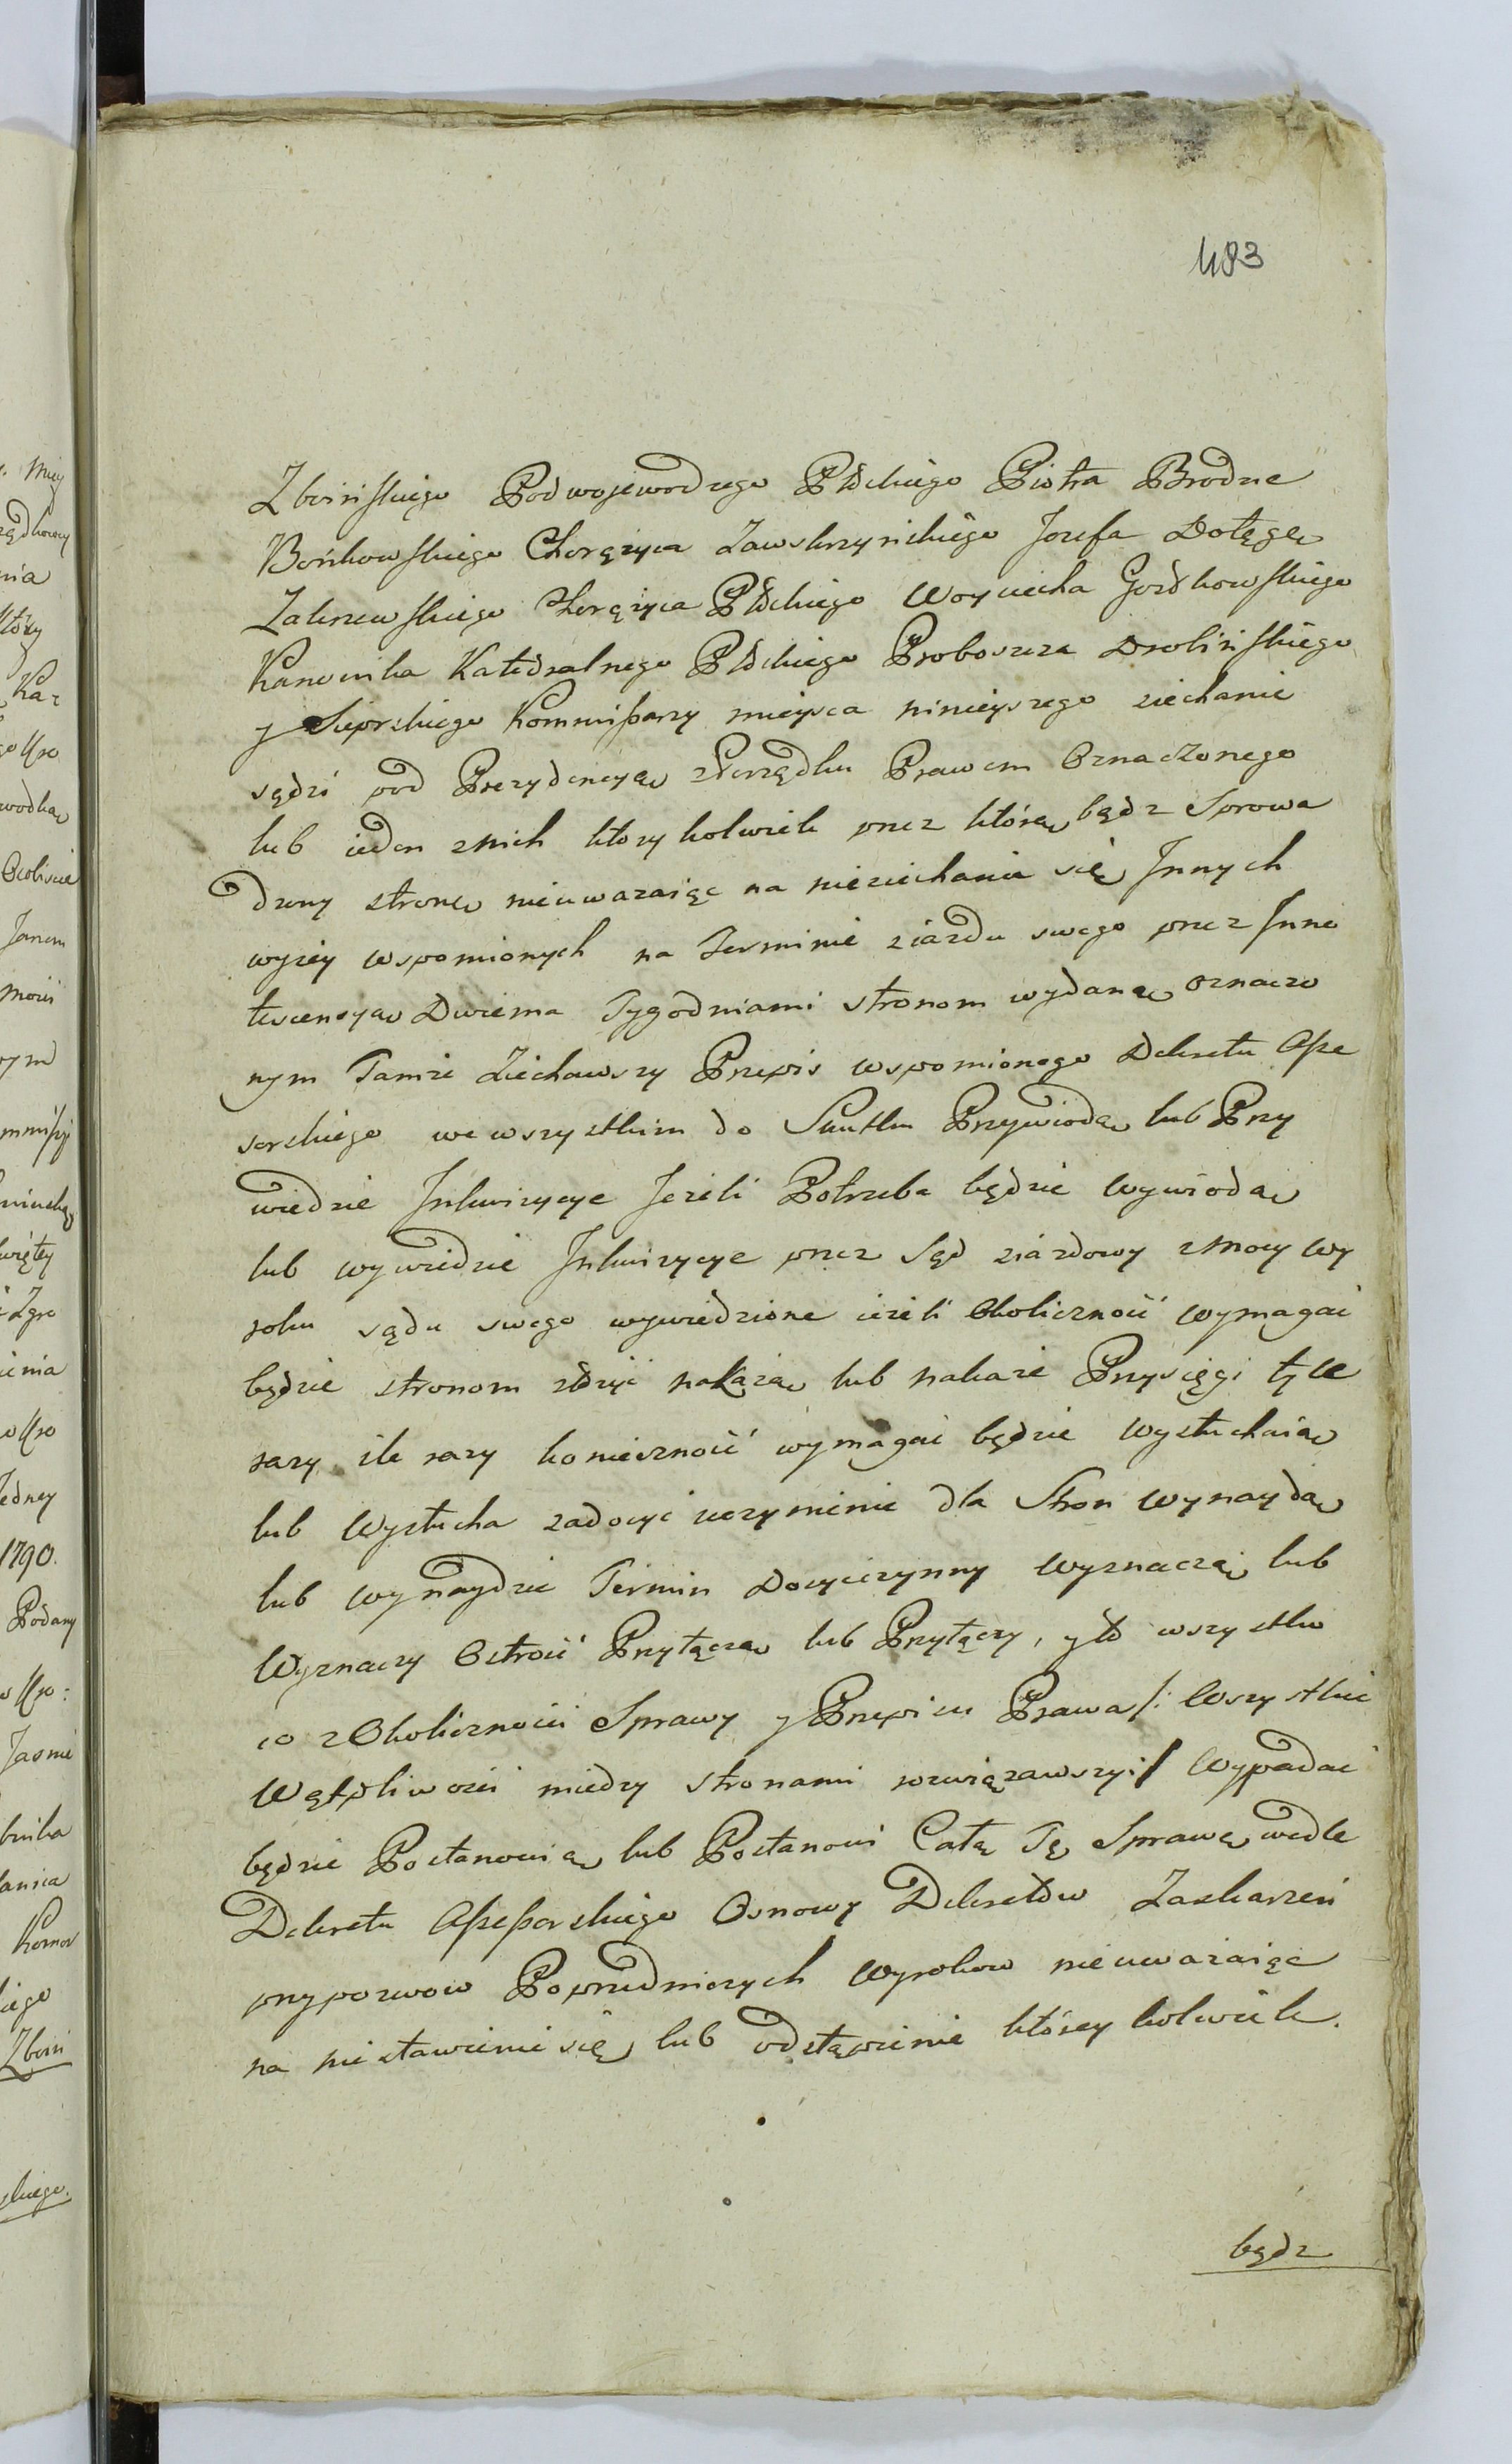 483
Zboińskiego Podwojewodzego Płckiego Piotra Brodzic
Bońkowskiego Chorążyca Zawskrzyńskiego Jozefa Dołęgę
Zakrzewskiego Chorążyca Płckiego Woyciecha Gordkowskiego
Kanonika Katedralnego Płckiego Proboszcza Drobińskiego
y Sieprskiego Kommissarzy mieysca ninieyszego ziechanie
sędzi pod Prezydencyą zPorządku Prawem Oznaczonego
lub ieden znich ktory kolwiek przez którą bądz Sprowa
dzony stronę nieuwazaiąc na nieziechanie się Innych
wyzey wspomionych na Terminie ziazdu swego przez Inno
tescencyą Dwiema Tygodniami stronom wydaną oznaczo
nym Tamże Ziechawszy Przepis wspomionego Dekretu Asse
sorskiego we wszystkim do Skutku Przywiodą lub Przy
wiedzie Inkwizycye Jezeli Potrzeba będzie wywiodą
lub wywiedzie Inkwizycye przez Sąd ziazdowy zmocy wy
roku sądu swego wywiedzione iezeli Okoliczność wymagać
będzie stronom złożyć nakażą lub nakaze Przysięgi tyle
razy ile razy konieczność wymagać będzie wysłuchaią
lub wysłucha zadosyć uczynienie dla Stron wynaydą
lub wynaydzie Termin Dosyćczynny wyznaczą lub
wyznaczy Ostrość Przyłączą lub Przyłączy, y to wszystko
co zOkoliczności Sprawy y Przepisu Prawa /: Wszystkie
Wątpliwości miedzy stronami rozwiązawszy :/ wypadać
będzie Postanowią lub Postanowi Całą Tę Sprawę wedle
Dekretu Assessorskiego Osnowy Dekretów Zaskarzeń
przypozwow Poprzedniczych wyrokow nieuważaiąc
na niestawienie się lub odstąpienie którey kolwiek.
bądz